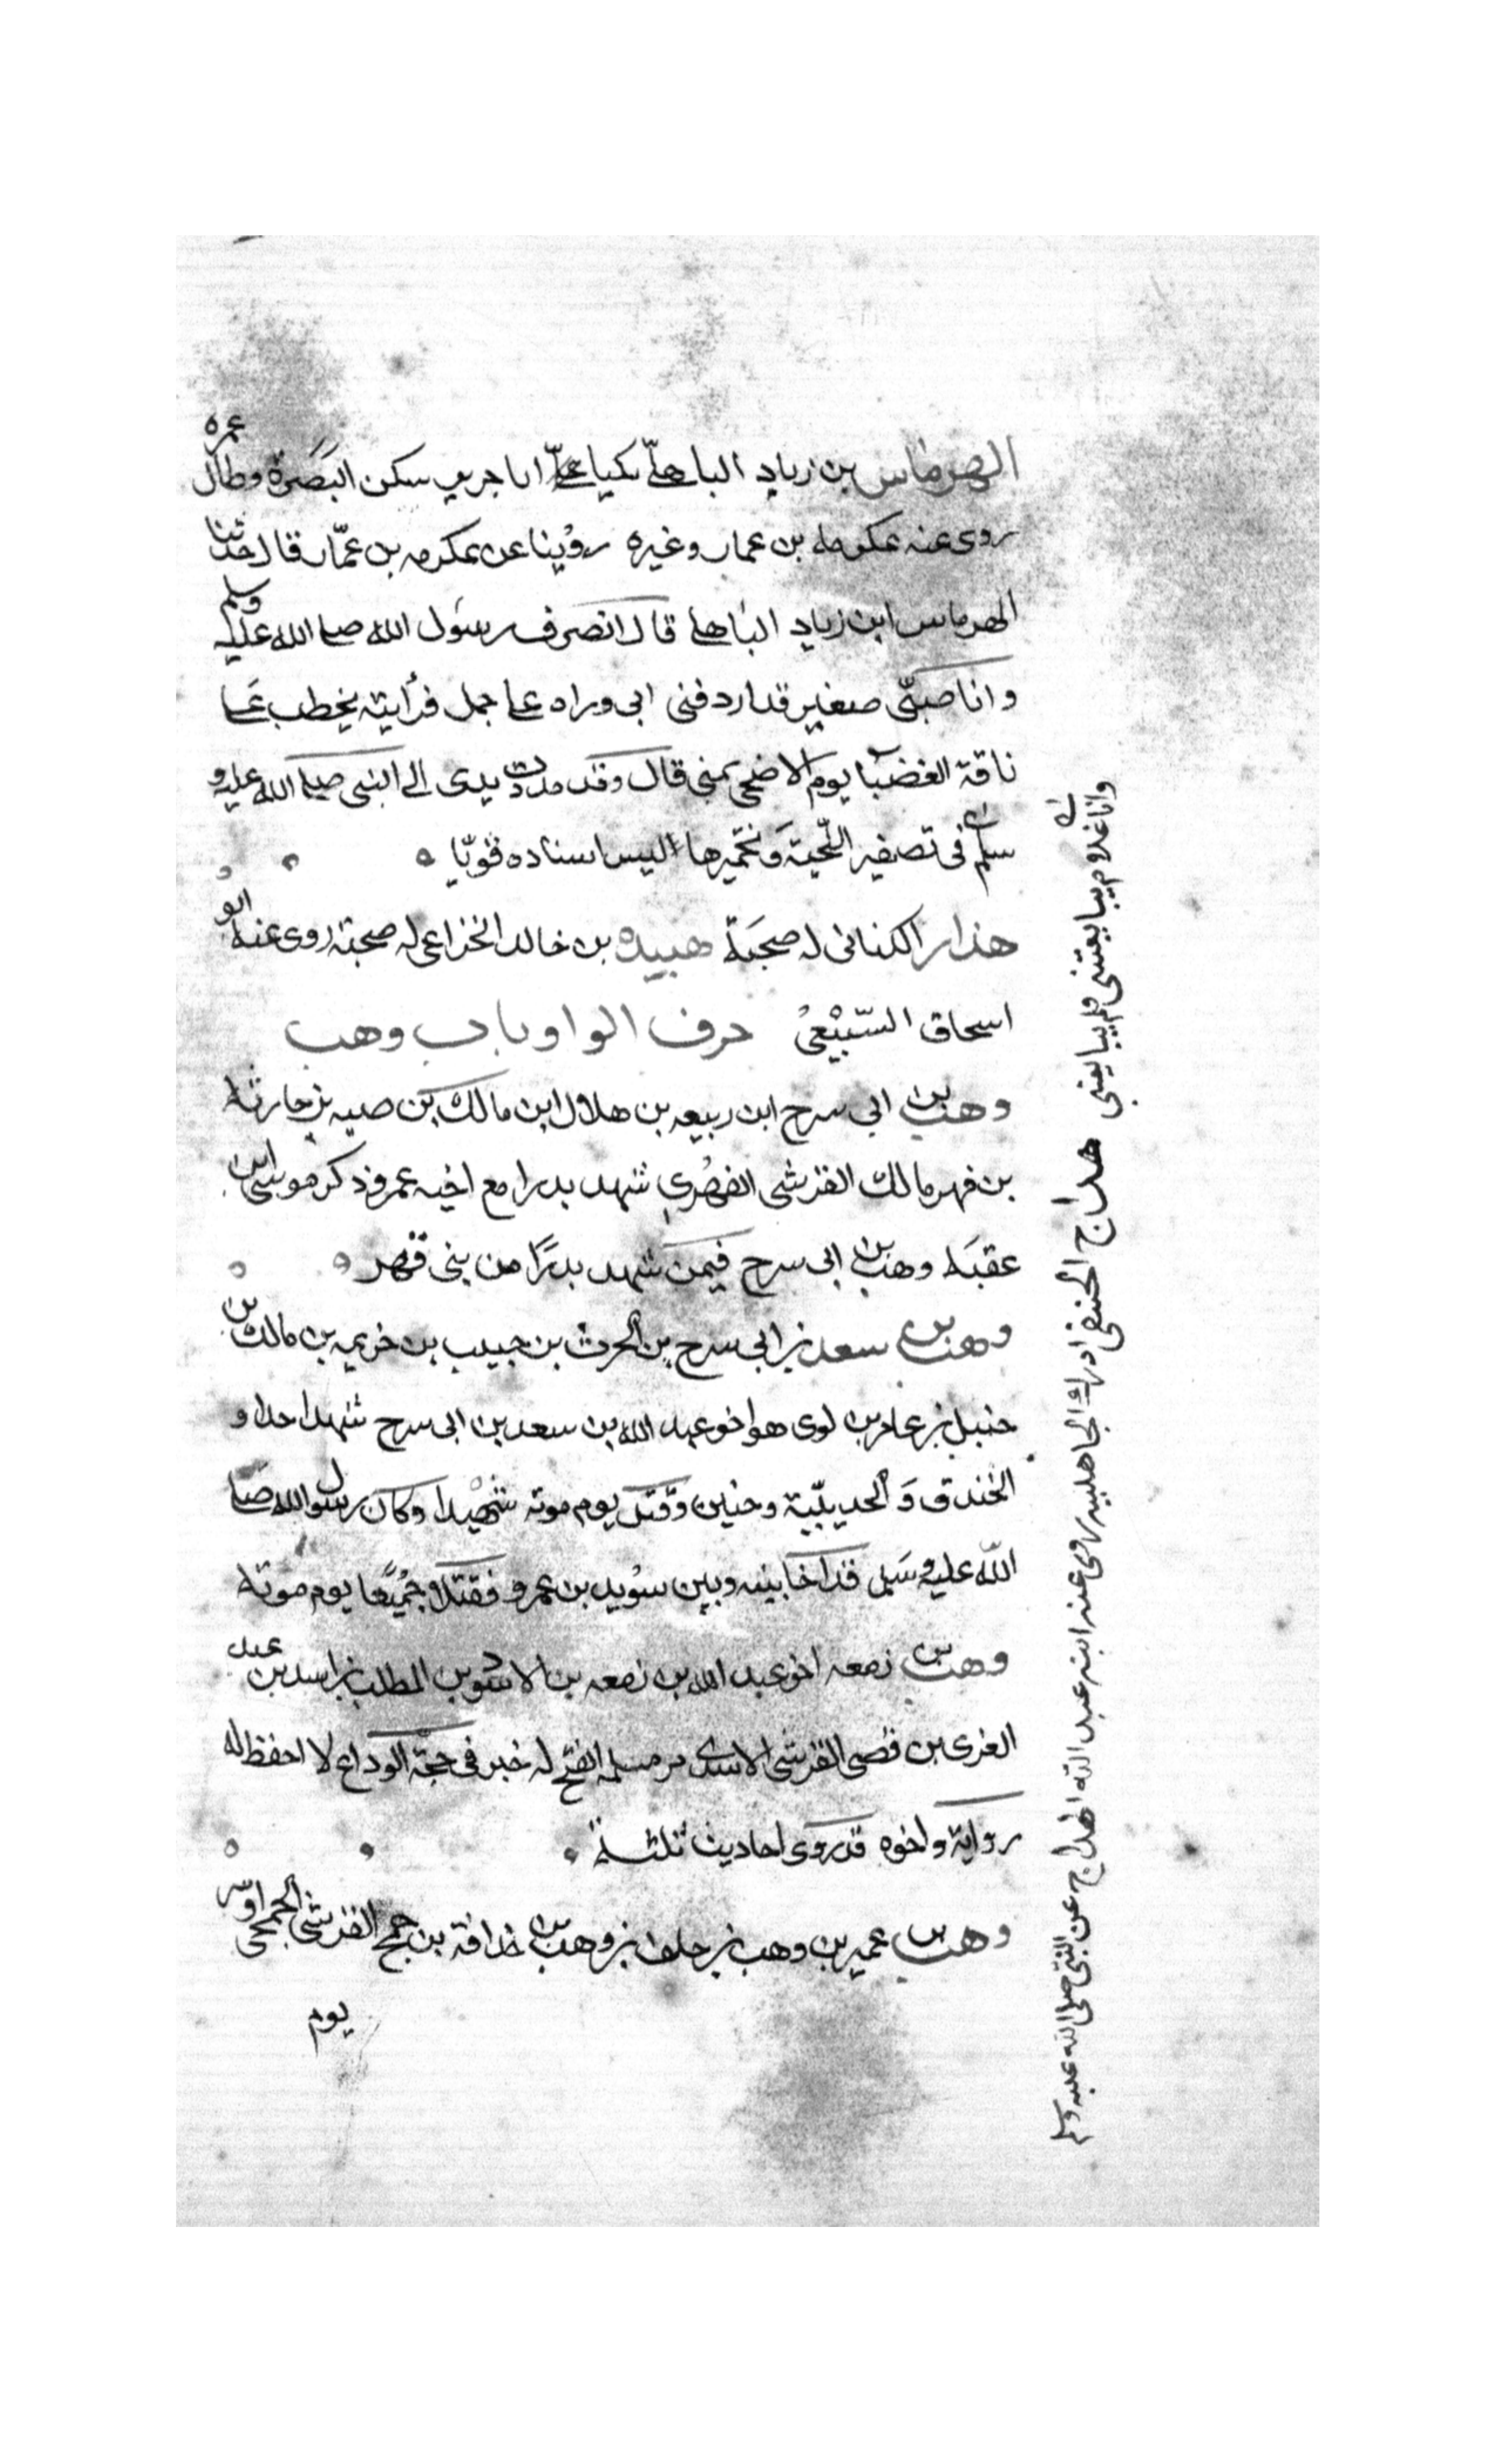 الهرماس بن زياد الباهلي يكنا ابا جرير سكن البصرة وطال عمره
روى عنه عكرمه بن عمار وغيره روينا عن عكرمه بن عمّار قال حدثنا
الهرماس ابن زياد الباهلي قال انصرف رسول الله صلى الله عليه وسلم
وانا صبيّ صغير قد اردفنى ابى وراه على جمل فرأيته يخطب على
ناقة العضبا يوم الاضحى بمنى قال وقد مددت يدى الى النبى صلى الله عليه و
سلم فى تصفير اللّحية وتخميرها ليس اسناده قويّا
هدار الكنانى له صحبة هبيده بن خالد الخزاعى له صحبة روى عنه ابو
اسحاق السّبيْعىْ حرف الواو باب وهب
وهب بن ابي سرح ابن ربيعه بن هلال ابن مالك بن صبه بن حارثه
بن فهر مالك القرشى الفهرى شهد بدرا مع اخيه عمرو ذكر موسى ابن
عقبه وهب بن ابى سرح فيمن شهد بدرًا من بنى فهر
وهب بن سعد بن ابى سرح بن الحرث بن حبيب بن خزيمه بن مالك بن
حنبل بن عامر بن لوى هو اخو عبد الله بن سعد بن ابى سرح شهد احدا و
الخندق والحديبيّة وحنين وقتل يوم موته شهيدا وكان رسول الله صلى
الله عليه وسلم قد اخا بينه وبين سُويد بن عمرو فقتلا جميعًا يوم موته
وهب بن زمعه اخو عبد الله بن زمعه بن الاسود بن المطلب بن اسد بن عبد
العزى بن قصى القرشى الاسدى من مسلمه الفتح له خبر فى حجّة الوداع لا احفظ له
رواية واخوه قد روى احاديث ثلثة
وهب بن عمير بن وهب بن خلف بن وهب بن حذافة بن جمح القرشى الجمحى اسر
يوم
هداج الحنفى ادرك الجاهليه روى عنه ابنه عبد الله الهداج عن النبى صلى الله عليه وسلم
وانا غلام يبايعنى فلم يبايعنى